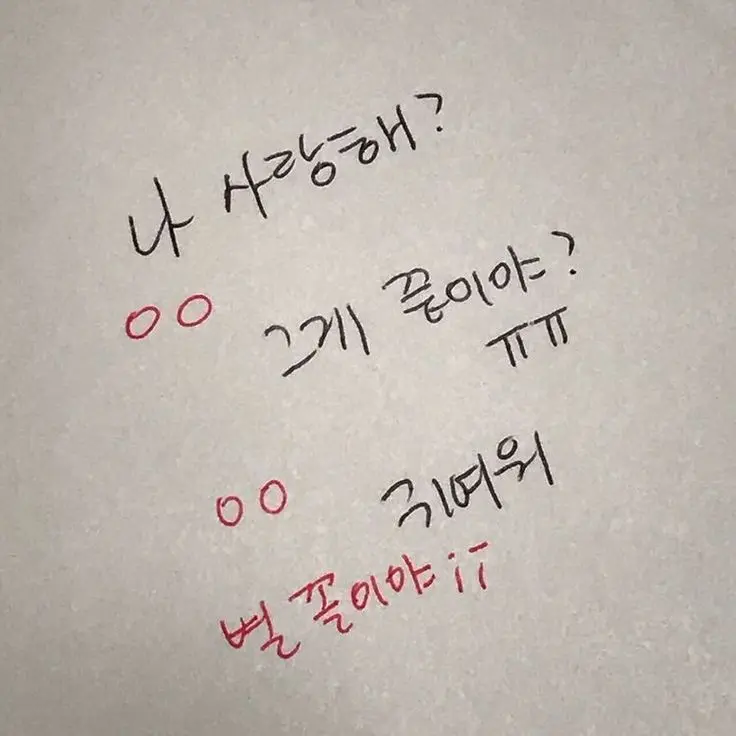 나 사랑해?
ㅇㅇ 그게 끝이야?
ㅠㅠ
ㅇㅇ 귀여워
별 꼴이야 ;;